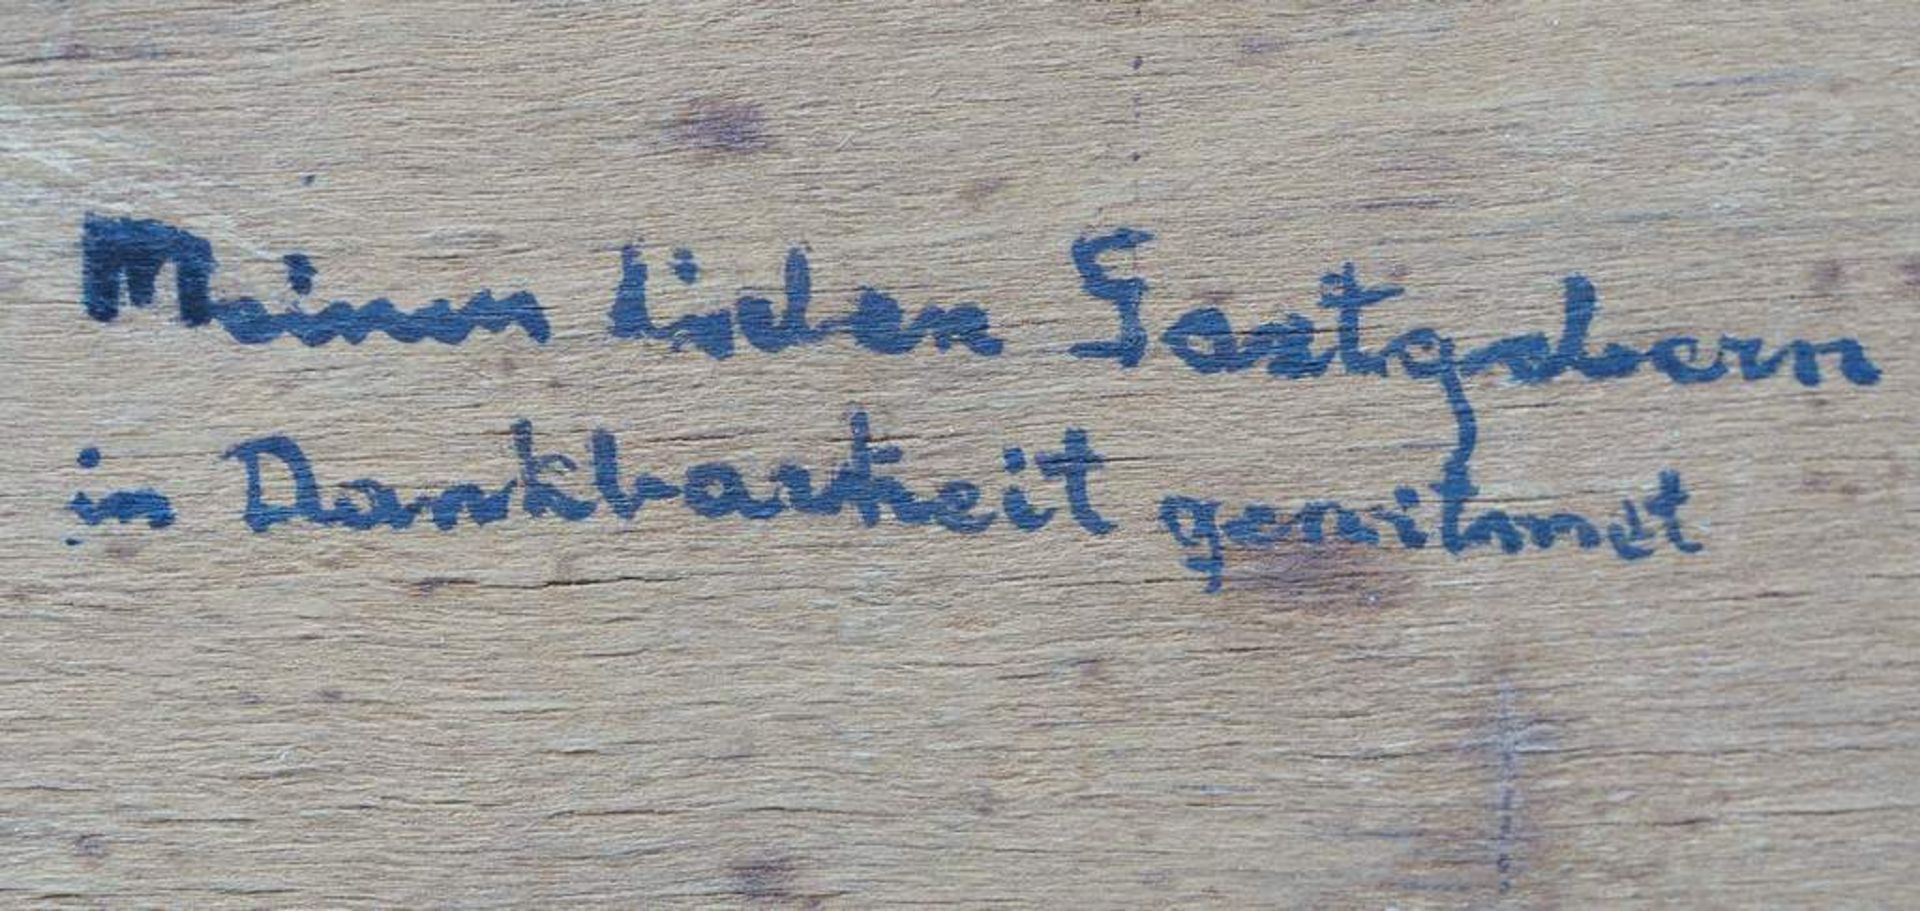 Meinen lieben Gastgebern
in Dankbarkeit gewidmet